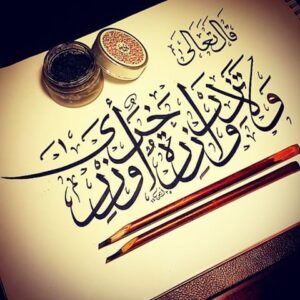 قال تعالى
ولا تزر وازرة وزر أخرى